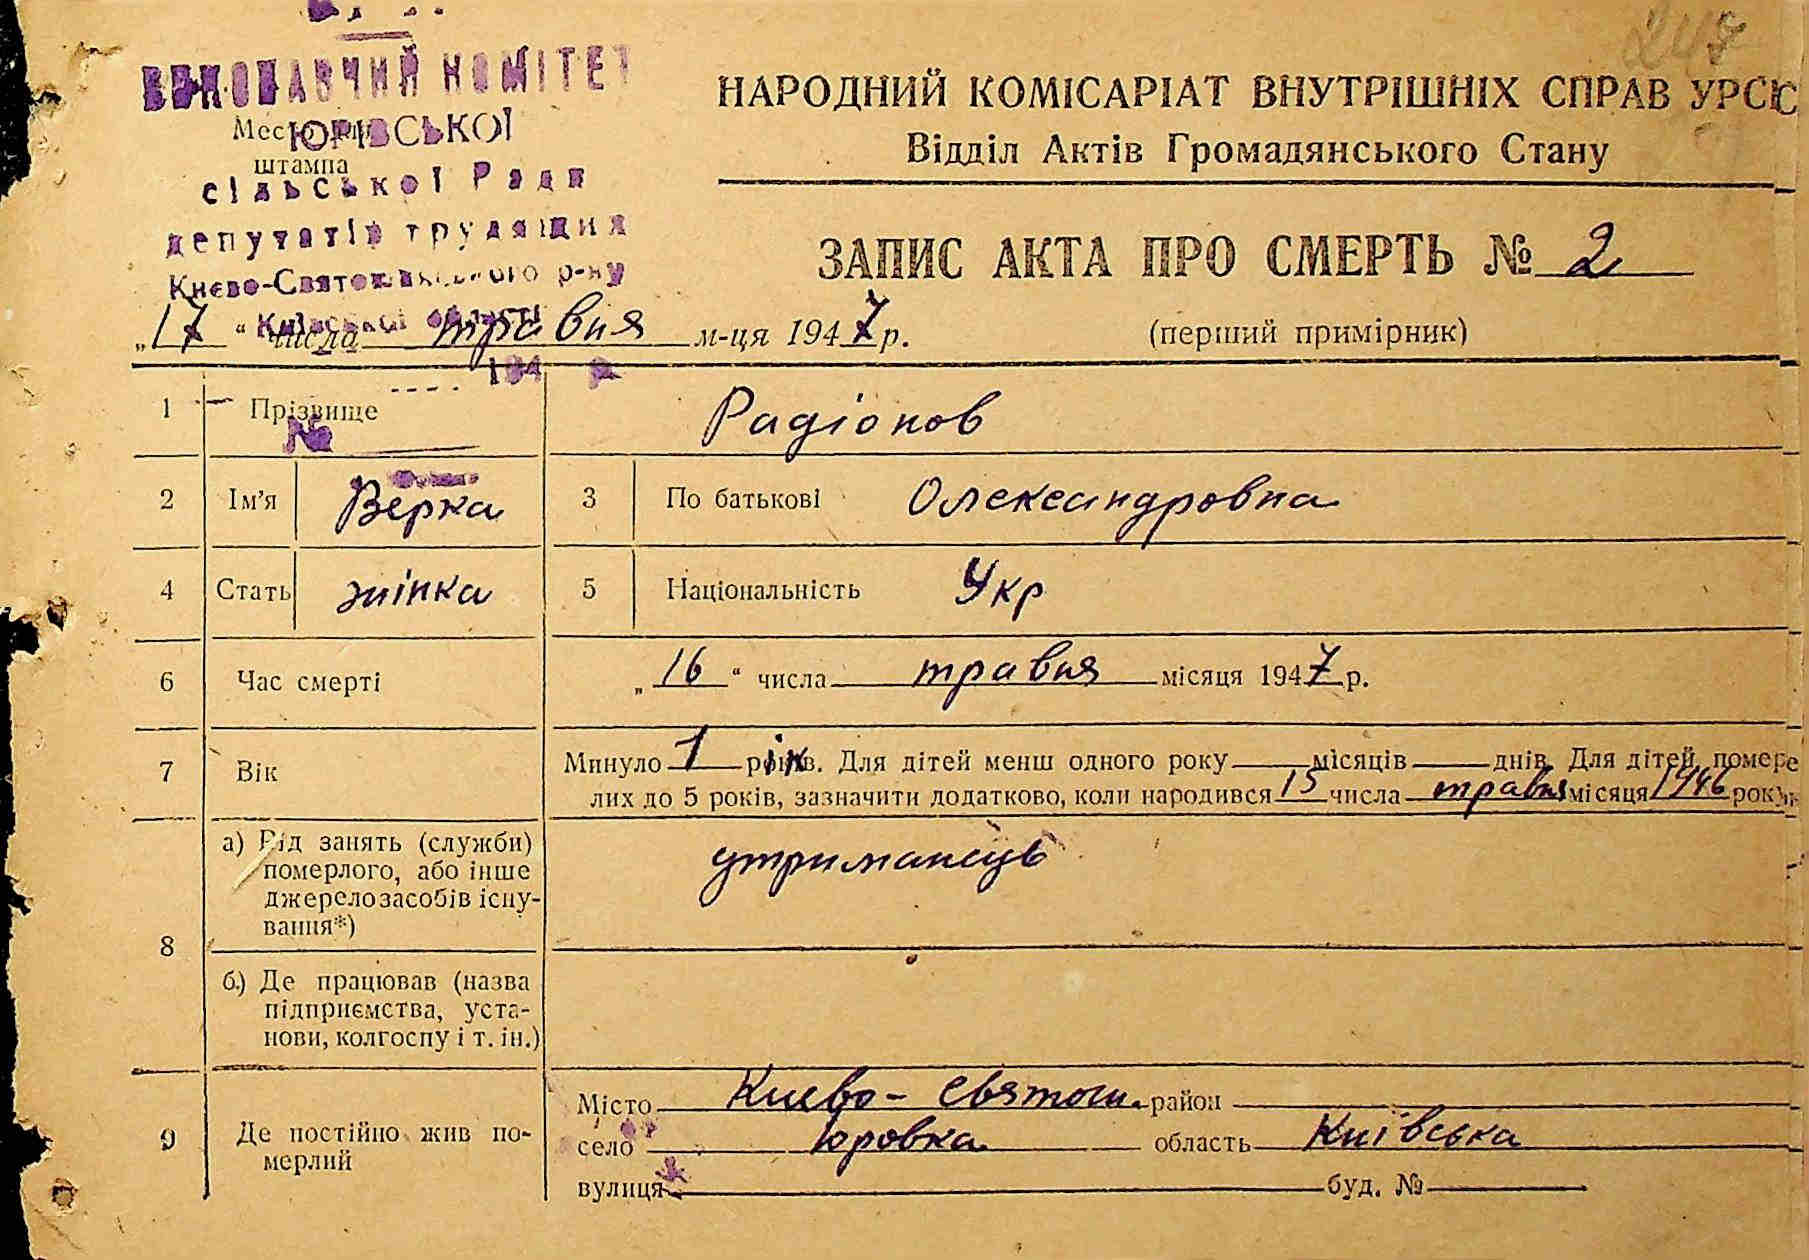 ВИКОНАВЧИЙ КОМІТЕТ
ЮРІВСЬКОЇ
сільської Ради
депутатів трудящих
Києво-Святошинського р-ну
Київської області
194 р.
№
Место для
штампа
247
НАРОДНИЙ КОМІСАРІАТ ВНУТРІШНІХ СПРАВ УРСР
Відділ Актів Громадянського Стану
ЗАПИС АКТА ПРО СМЕРТЬ № 2
„17“ числа травня м-ця 1947 р.
(перший примірник)
1 Прізвище Радіонов
2 Ім’я Верка 3 По батькові Олександровна
4 Стать жінка 5 Національність Укр
6 Час смерті „16“ числа травня місяця 1947 р.
7 Вік Минуло 1 рік. Для дітей менш одного року місяців днів. Для дітей, помер-
лих до 5 років, зазначити додатково, коли народився 15 числа травня місяця 1946 року
8 а) Рід занять (служби) утриманець
померлого, або інше
джерело засобів існу-
вання*)
б.) Де працював (назва
підприємства, уста-
нови, колгоспу і т. ін.)
9 Де постійно жив по-
мерлий
Місто Києво-Святош. район
село Юровка область Київська
вулиця буд. №